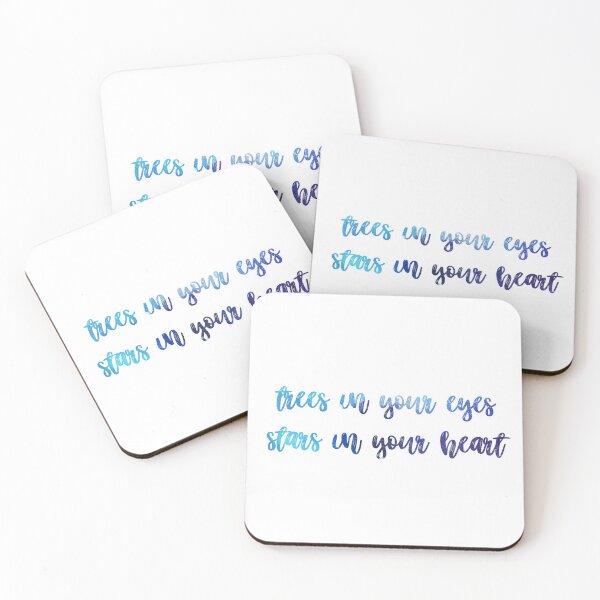 trees in your eyes
stars in your heart
trees in your eyes
stars in your heart
trees in your eyes
stars in your heart
trees in your eyes
stars in your heart